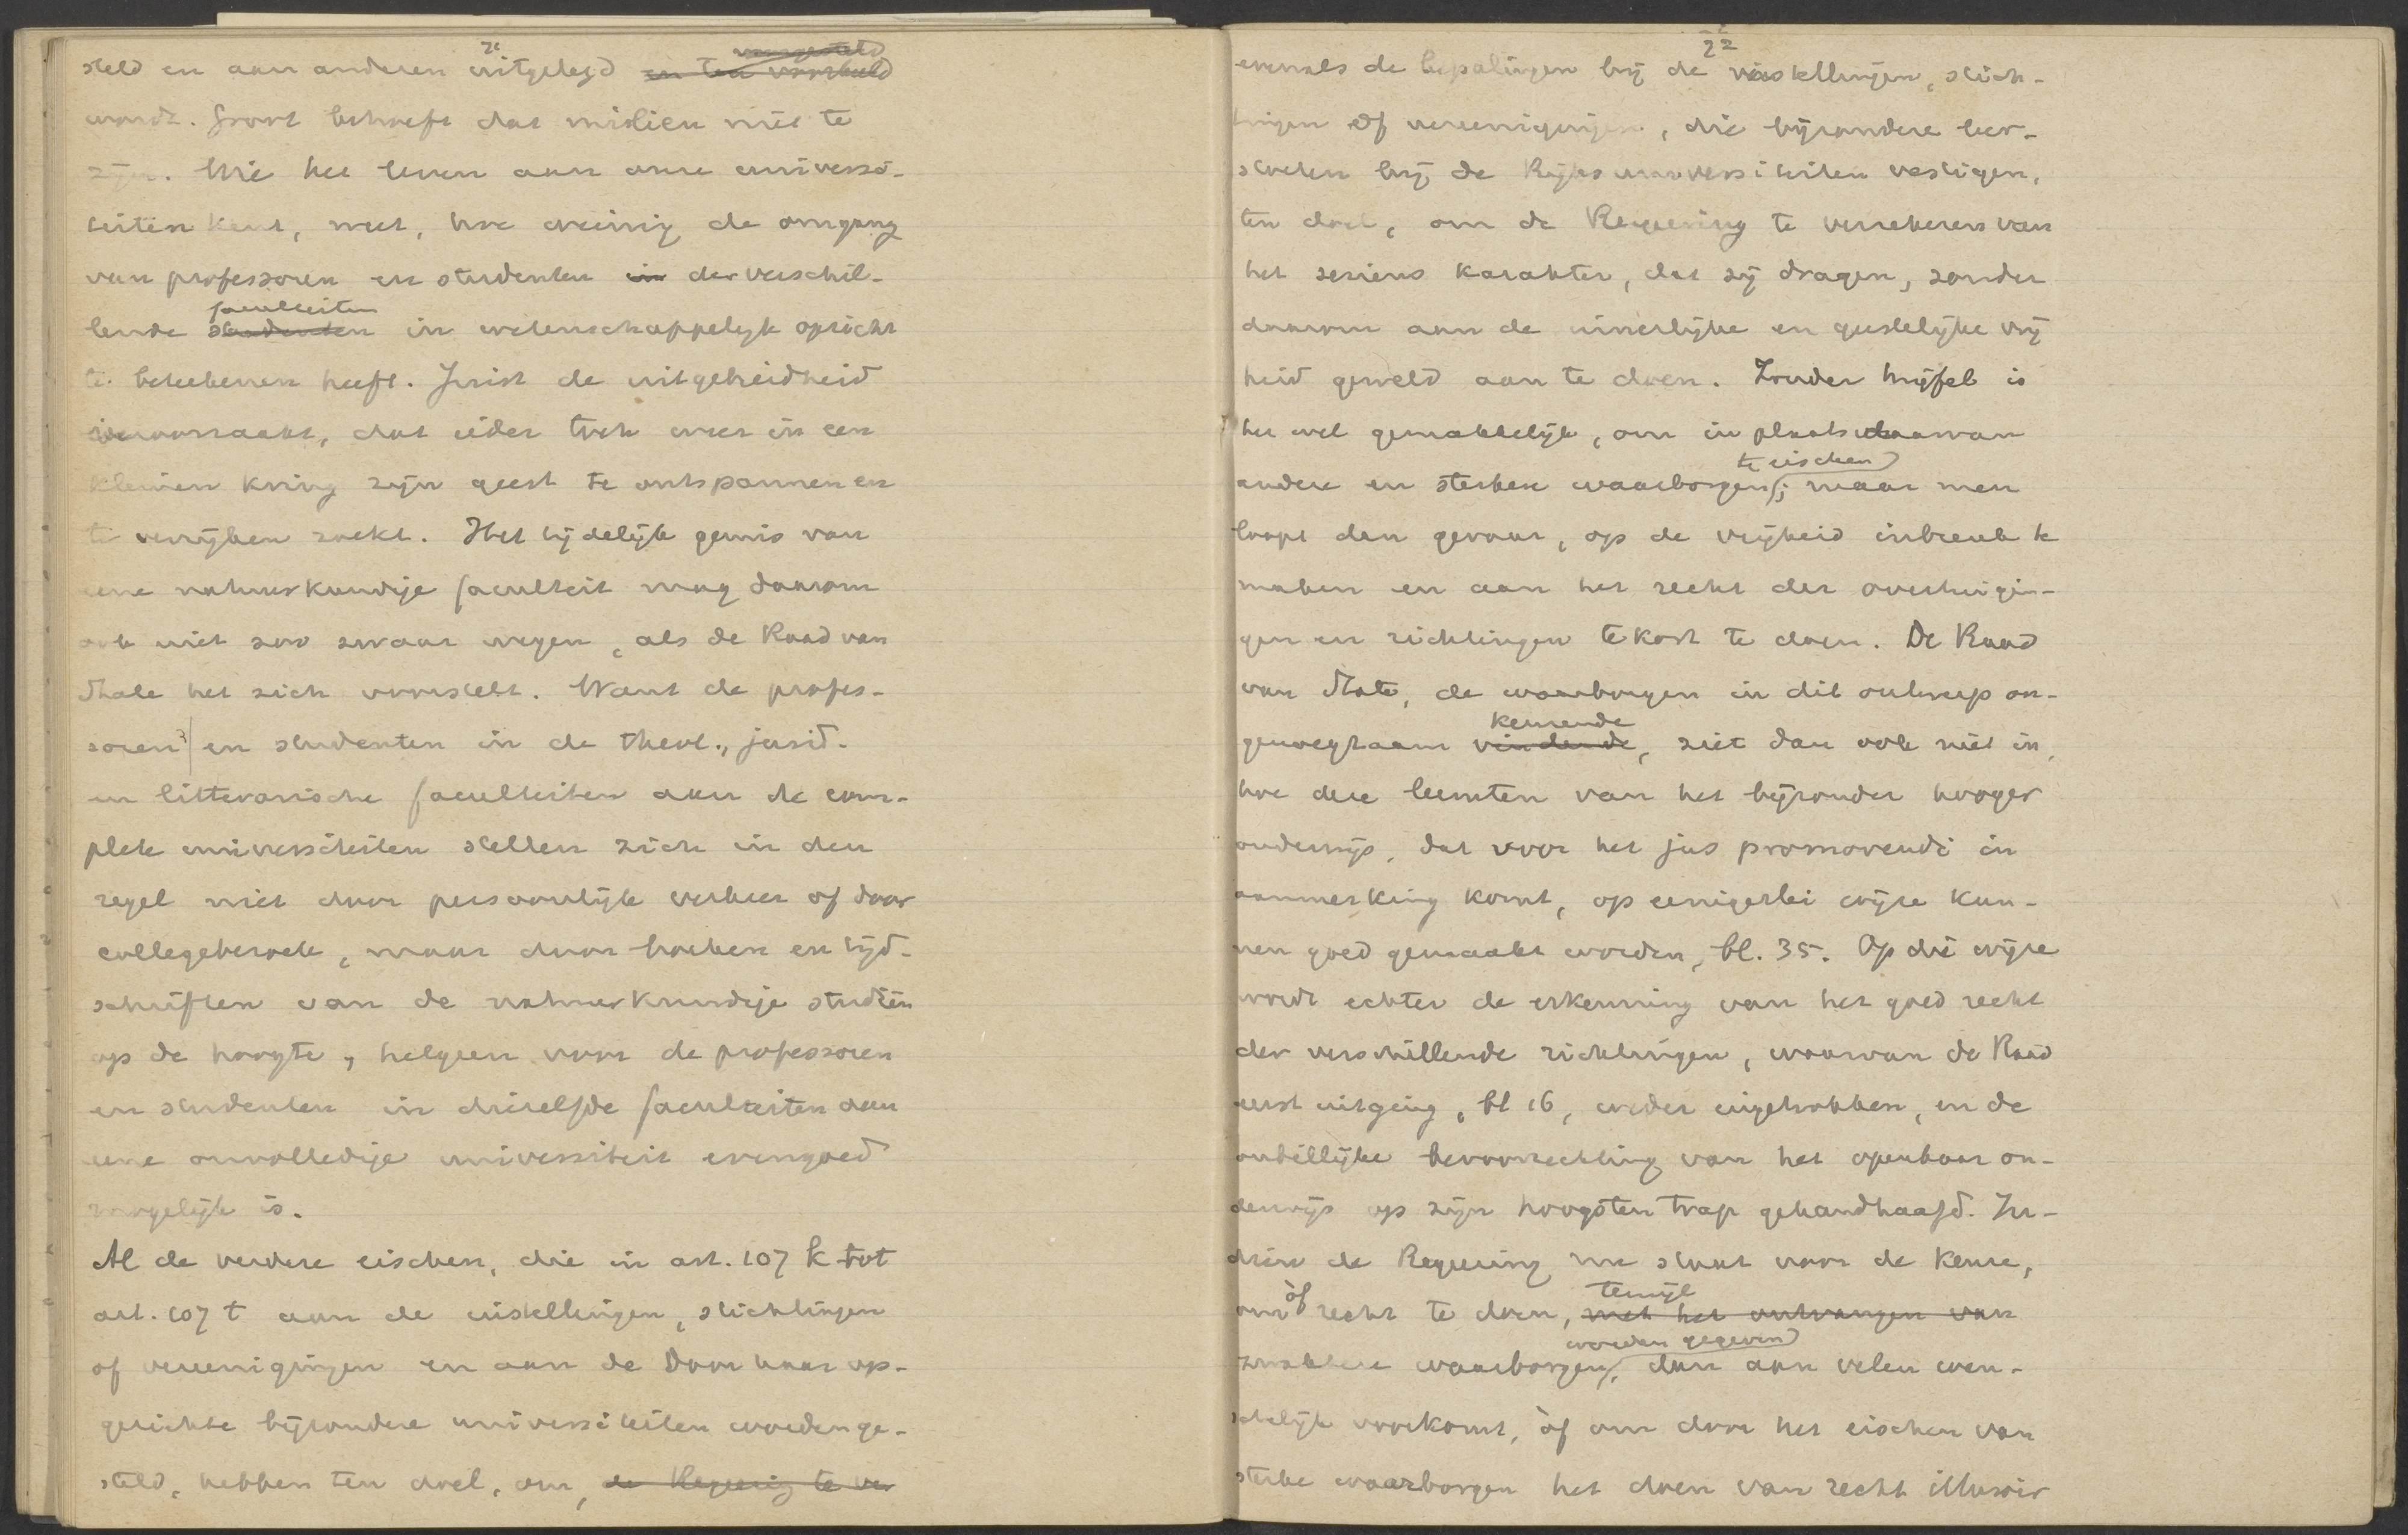 steld en aan anderen uitgelegd ~~en ten voorbeeld~~ ~~voorgesteld~~
wordt. Groot behoeft dat milieu niet te
zijn. Wie het leven aan onze universi-
teiten kent, weet, hoe weinig de omgang
van professoren en studenten ~~in~~ der verschil-
lende ~~studenten~~ faculteiten in wetenschappelijk opzicht
te beteekenen heeft. Juist de uitgebreidheid
veroorzaakt, dat ieder toch weer in een
kleinen kring zijn geest te ontspannen en
te verrijken zoekt. Het tijdelijk gemis van
eene natuurkundige faculteit mag daarom
ook niet zoo zwaar wegen, als de Raad van
State het zich voorstelt. Want de profes-
soren en studenten in de theol., jurid.
en litterarische faculteiten aan de com-
plete universiteiten stellen zich in den
regel niet door persoonlijk verkeer of door
collegebezoek, maar door boeken en tijd-
schriften van de natuurkundige studiën
op de hoogte, hetgeen voor de professoren
en studenten in diezelfde faculteiten aan
eene onvolledige universiteit evengoed
mogelijk is.
Al de verdere eischen, die in art. 107 k tot
art. 107 t aan de instellingen, stichtingen
of vereenigingen en aan de door haar op-
gerichte bijzondere universiteiten worden ge-
steld, hebben ten doel, om, ~~de Regeering te ver~~
22
evenals de bepalingen bij de instellingen, stich-
tingen of vereenigingen, die bijzondere leer-
stoelen bij de Rijksuniversiteiten vestigen,
ten doel, om de Regeering te verzekeren van
het serieus karakter, dat zij dragen, zonder
daarom aan de innerlijke en geestelijke vrij
heid geweld aan te doen. Zonder twijfel is
het wel gemakkelijk, om in plaats daarvan
andere en sterkere waarborgen te eischen; maar men
loopt dan gevaar, op de vrijheid inbreuk te
maken en aan het recht der overtuigin-
gen en richtingen te kort te doen. De Raad
van State, de waarborgen in dit ontwerp on-
genoegzaam ~~vindende~~ keurende, ziet dan ook niet in,
hoe deze leemten van het bijzonder hooger
onderwijs, dat voor het jus promovendi in
aanmerking komt, op eenigerlei wijze kun-
nen goed gemaakt worden, bl. 35. Op die wijze
wordt echter de erkenning van het goed recht
der verschillende richtingen, waarvan de Raad
eerst uitging, bl 16, weder ingetrokken, en de
onbillijke bevoorrechting van het openbaar on-
derwijs op zijn hoogsten trap gehandhaafd. In-
dien de Regeering nu staat voor de keuze,
om òf recht te doen, ~~met het ontvangen van~~ terwijl
zwakkere waarborgen worden gegeven, dan aan velen wen-
schelijk voorkomt, òf om door het eischen van
sterke waarborgen het doen van recht illusoir